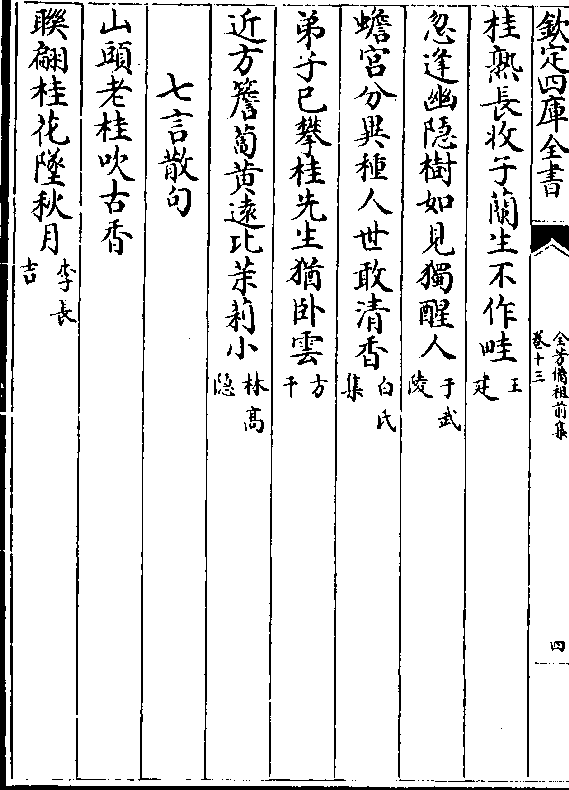 欽定四庫全書
全芳備祖前集
卷十三
四
桂熟長收子蘭生不作畦王建
忽逢幽隠樹如見獨醒人于武陵
蟾宫分異種人世敢清香白氏集
弟子已攀桂先生猶卧雲方干
近方簷蔔黄逺比茉莉小林髙隠
七言散句
山頭老桂吹古香
聨翩桂花墜秋月李長吉